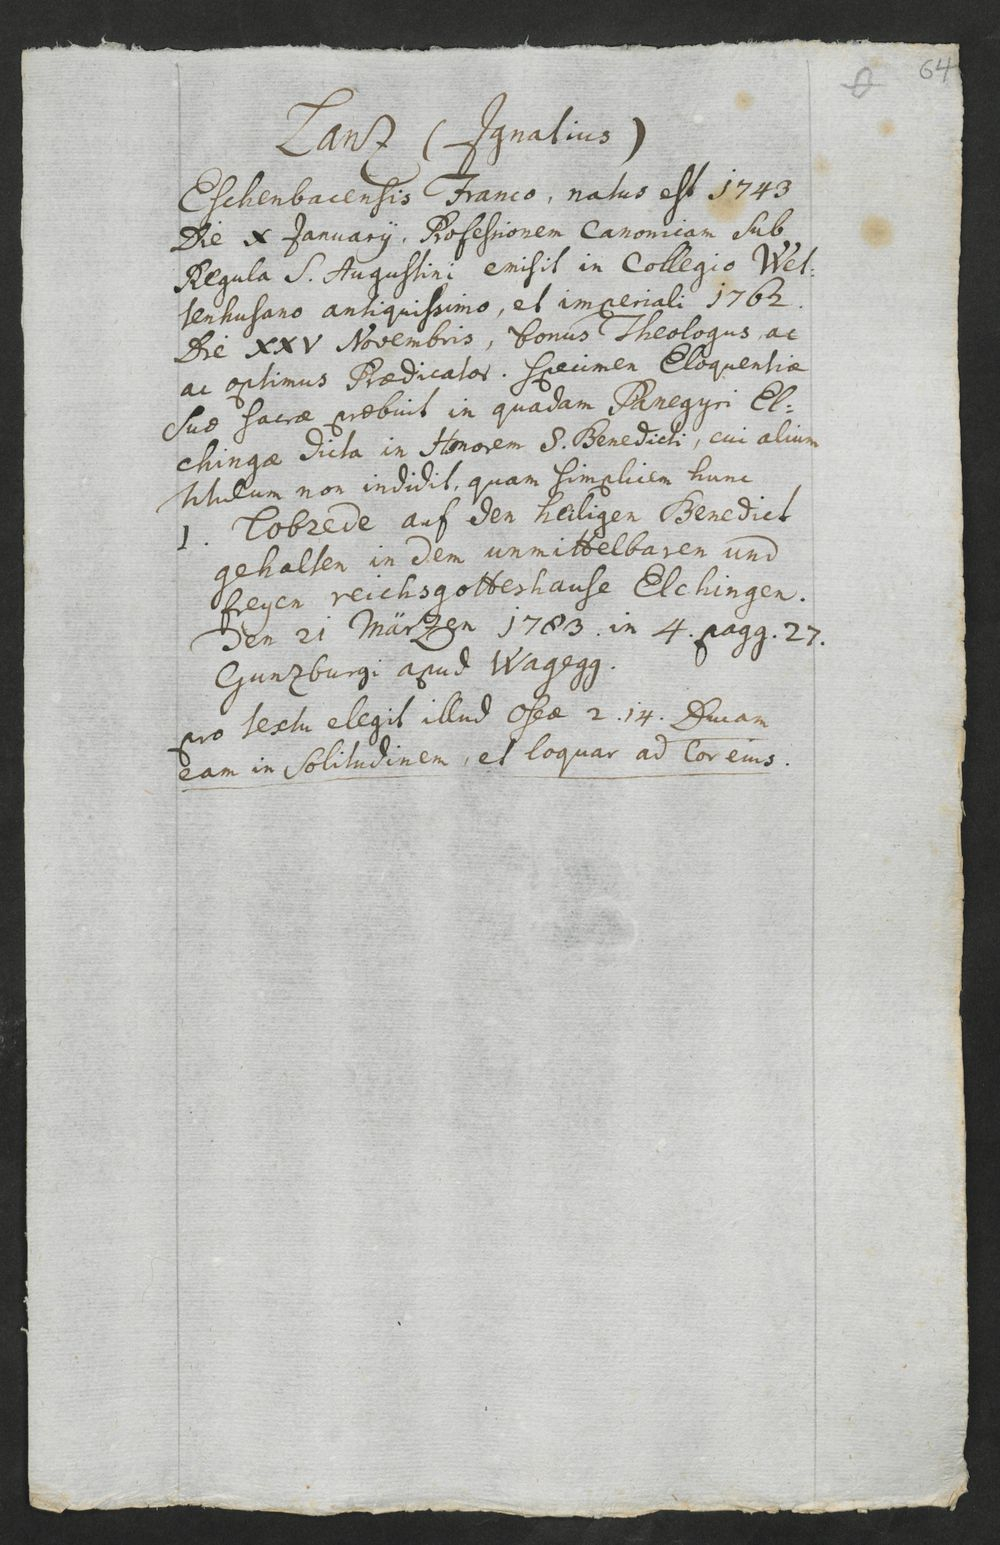 64
Lanz (Ignatius)
Eschenbacensis Franco, natus est 1743
Die X Januarij. Professionem Canonicam sub
Regula S. Augustini emisit in Collegio Wet=
tenhusano antiquissimo, et imperiali 1762.
Die XXV Novembris, bonus Theologus, ac
ac optimus Prædicator. Specimen Eloquentiæ
suæ sacræ præbuit in quadam Panegyri El=
chingæ dicta in Honorem S. Benedicti, cui alium
titulum non indidit, quam simplicem hunc
1. Lobrede auf den heiligen Benedict
gehalten in dem unmittelbaren und
freyen reichsgotteshause Elchingen.
Den 21 Märzen 1783. in 4. pagg. 27.
Gunzburgi apud Wagegg.
pro textu elegit illud Oseæ 2. 14. Ducam
eam in solitudinem, et loquar ad Cor eius.